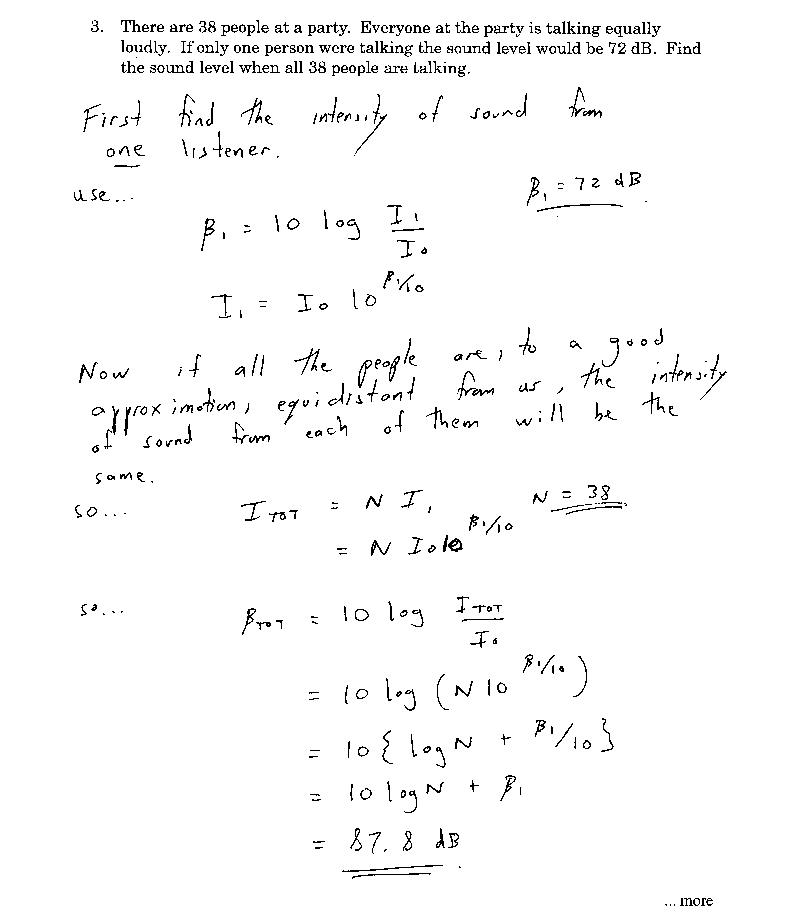 3. There are 38 people at a party. Everyone at the party is talking equally
loudly. If only one person were talking the sound level would be 72 dB. Find
the sound level when all 38 people are talking.
First find the intensity of sound from
one listener.
use... β₁ = 72 dB
β₁ = 10 log I₁/I₀
I₁ = I₀ 10^(β₁/10)
Now if all the people are, to a good
approximation, equidistant from us, the intensity
of sound from each of them will be the
same.
so... I TOT = N I₁ N = 38
= N I₀ 10^(β₁/10)
so... β TOT = 10 log I TOT/I₀
= 10 log (N 10^(β₁/10))
= 10 { log N + β₁/10 }
= 10 log N + β₁
= 87.8 dB
... more